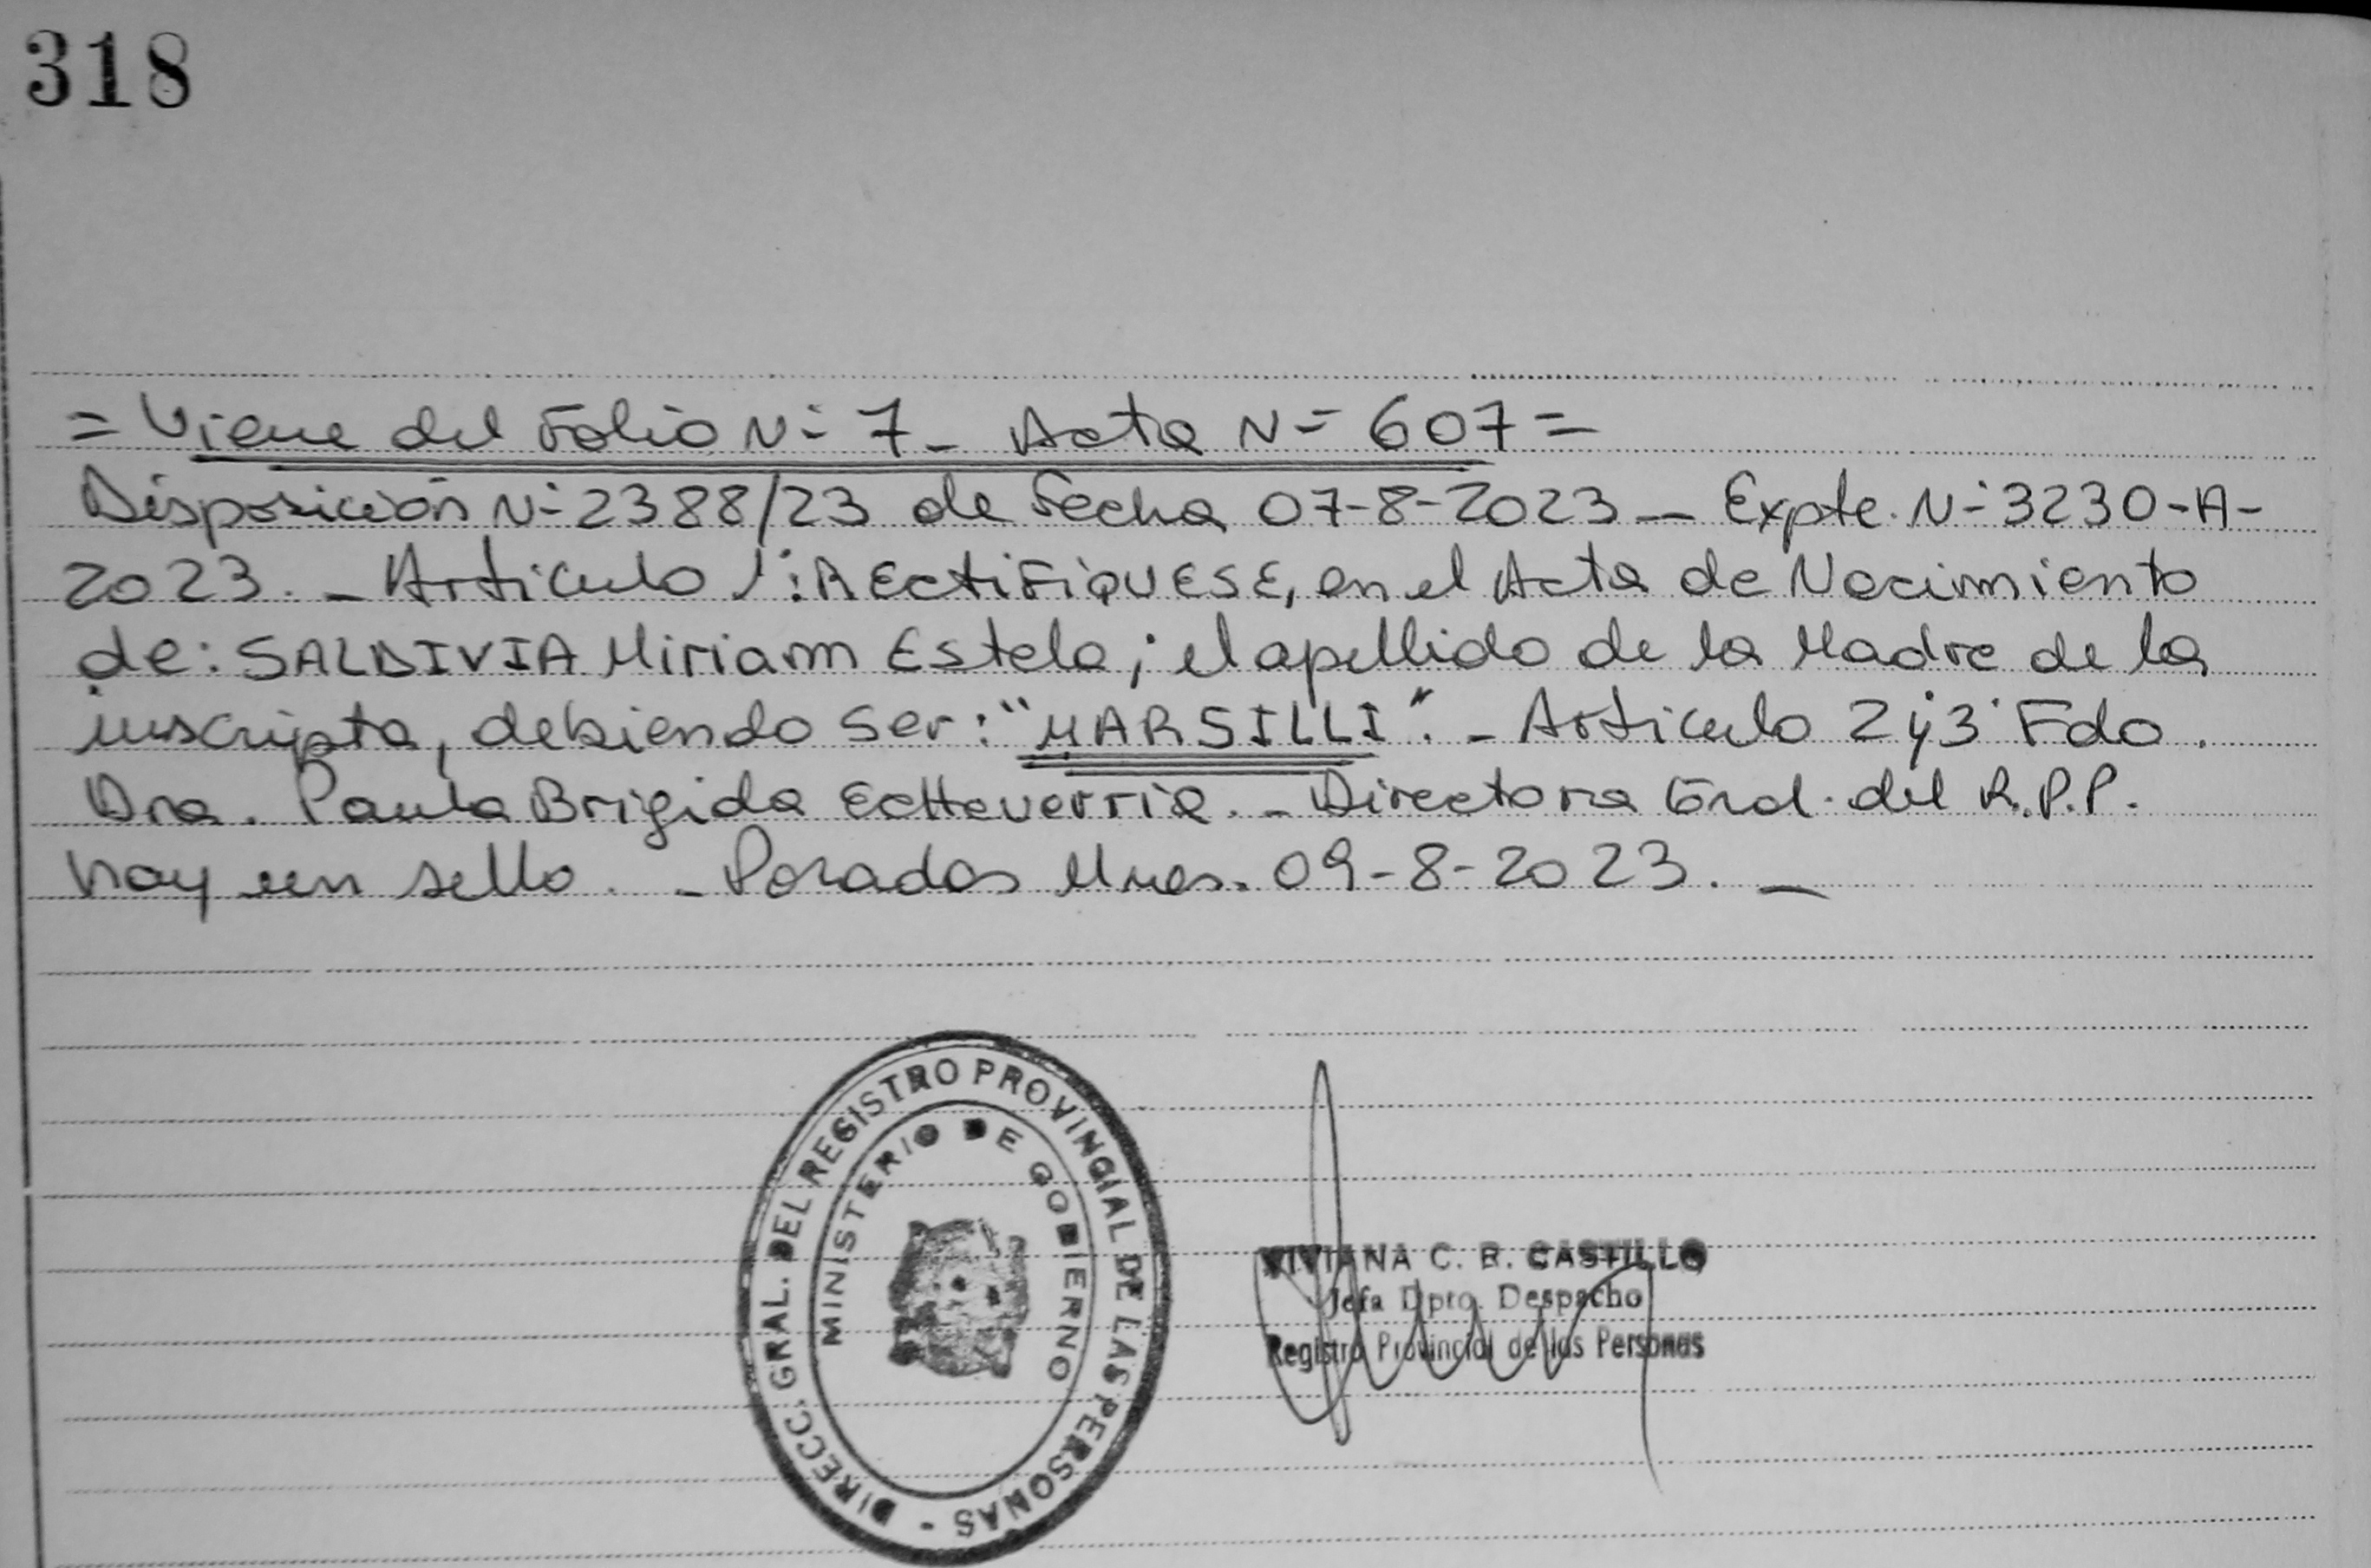 318
= Viene del Folio N° 7 - Acta N° 607 =
Disposición N° 2388/23 de Fecha 07-8-2023 — Expte. N° 3230-A-
2023. - Articulo 1°: RECTIFIQUESE, en el Acta de Nacimiento
de: SALDIVIA Miriam Estela; el apellido de la Madre de la
inscripta, debiendo ser: "MARSILLI". - Articulo 2 y 3° Fdo.
Dra. Paula Brigida Echeverria. - Directora Gral. del R.P.P.
hay un sello. - Posadas Mnes. 09-8-2023. —
DIRECC. GRAL. DEL REGISTRO PROVINCIAL DE LAS PERSONAS -
MINISTERIO DE GOBIERNO
VIVIANA C. B. CASTILLO
Jefa Dpto. Despacho
Registro Provincial de las Personas